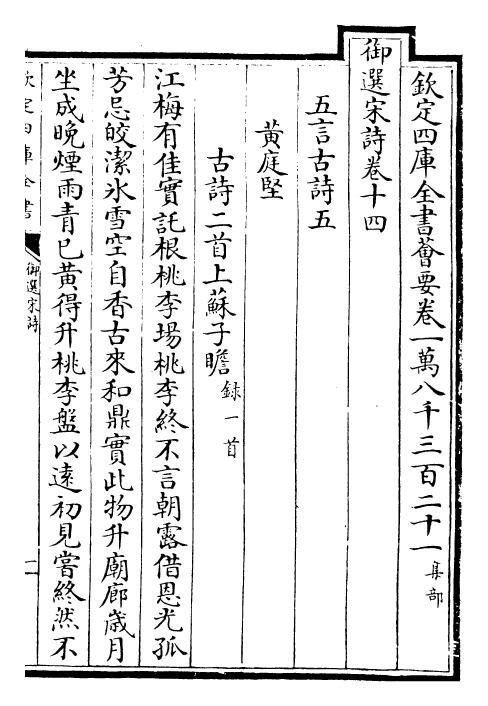 欽定四庫全書薈要卷一萬八千三百二十一集部
御選宋詩卷十四
五言古詩五
黃庭堅
古詩二首上蘇子瞻録一首
江梅有佳實託根桃李場桃李終不言朝露借恩光孤
芳忌皎潔氷雪空自香古來和鼎實此物升廟廊歲月
坐成晚煙雨青已黃得升桃李盤以遠初見嘗終然不
欽定四庫全書
御選宋詩